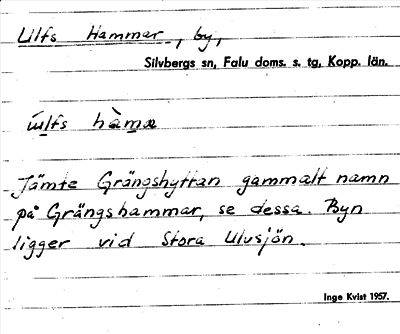 Ulfs Hammar, by,
Silvbergs sn, Falu doms. s. tg, Kopp. län.
hàmæ
Jämte Grängshyttan gammalt namn
på Grängshammar, se dessa. Byn
ligger vid Stora Ulvsjön.
Inge Kvist 1957.